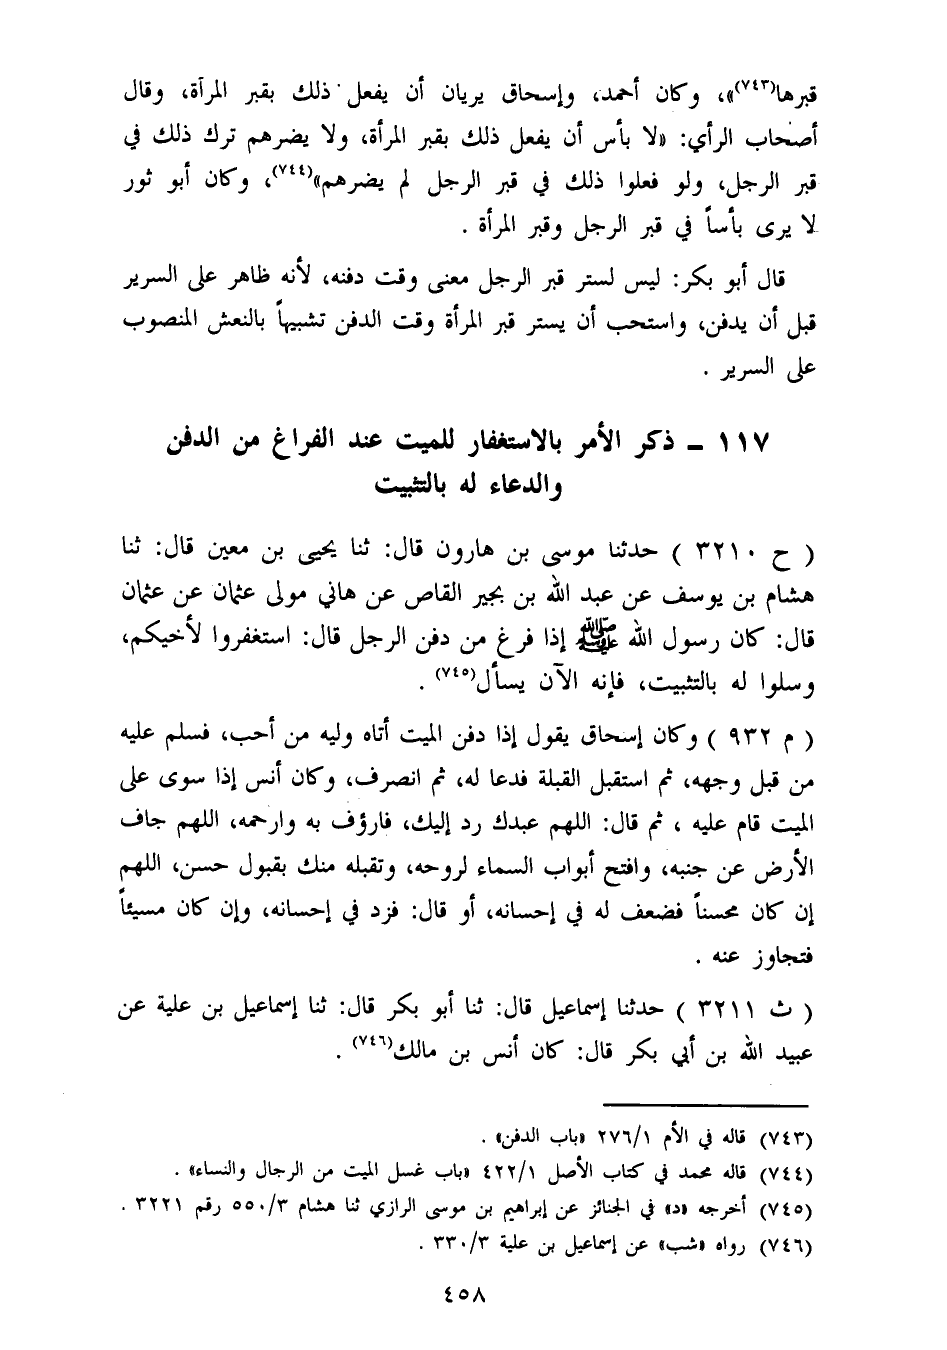 قبرها(٧٤٣)»، وكان أحمد، وإسحاق يريان أن يفعل ذلك بقبر المرأة، وقال
أصحاب الرأي: «لا بأس أن يفعل ذلك بقبر المرأة، ولا يضرهم ترك ذلك في
قبر الرجل، ولو فعلوا ذلك في قبر الرجل لم يضرهم»(٧٤٤)، وكان أبو ثور
لا يرى بأساً في قبر الرجل وقبر المرأة .
قال أبو بكر: ليس لستر قبر الرجل معنى وقت دفنه، لأنه ظاهر على السرير
قبل أن يدفن، واستحب أن يستر قبر المرأة وقت الدفن تشبيهاً بالنعش المنصوب
على السرير .
١١٧ ـ ذكر الأمر بالاستغفار للميت عند الفراغ من الدفن
والدعاء له بالتثبيت
( ح ٣٢١٠ ) حدثنا موسى بن هارون قال: ثنا يحيى بن معين قال: ثنا
هشام بن يوسف عن عبد الله بن بجير القاص عن هاني مولى عثمان عن عثمان
قال: كان رسول الله ﷺ إذا فرغ من دفن الرجل قال: استغفروا لأخيكم،
وسلوا له بالتثبيت، فإنه الآن يسأل(٧٤٥) .
( م ٩٣٢ ) وكان إسحاق يقول إذا دفن الميت أتاه وليه من أحب، فسلم عليه
من قبل وجهه، ثم استقبل القبلة فدعا له، ثم انصرف، وكان أنس إذا سوى على
الميت قام عليه ، ثم قال: اللهم عبدك رد إليك، فارؤف به وارحمه، اللهم جاف
الأرض عن جنبه، وافتح أبواب السماء لروحه، وتقبله منك بقبول حسن، اللهم
إن كان محسناً فضعف له في إحسانه، أو قال: فزد في إحسانه، وإن كان مسيئاً
فتجاوز عنه .
( ث ٣٢١١ ) حدثنا إسماعيل قال: ثنا أبو بكر قال: ثنا إسماعيل بن علية عن
عبيد الله بن أبي بكر قال: كان أنس بن مالك(٧٤٦) .
(٧٤٣) قاله في الأم ٢٧٦/١ «باب الدفن» .
(٧٤٤) قاله محمد في كتاب الأصل ٤٢٢/١ «باب غسل الميت من الرجال والنساء» .
(٧٤٥) أخرجه «د» في الجنائز عن إبراهيم بن موسى الرازي ثنا هشام ٥٥٠/٣ رقم ٣٢٢١ .
(٧٤٦) رواه «شب» عن إسماعيل بن علية ٣٣٠/٣ .
٤٥٨